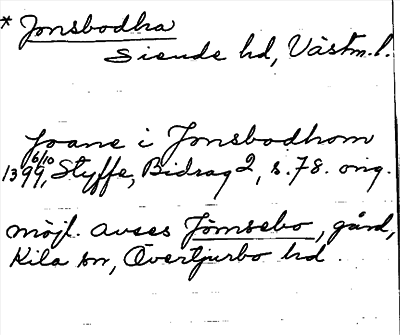 * Jonsbodha
Siende hd, Västm. l.
Joane i Jonsbodhom
1399 6/10, Styffe, Bidrag 2, s. 78. orig.
möjl. avses Jömsebo, gård,
Kila sn, Övertjurbo hd.